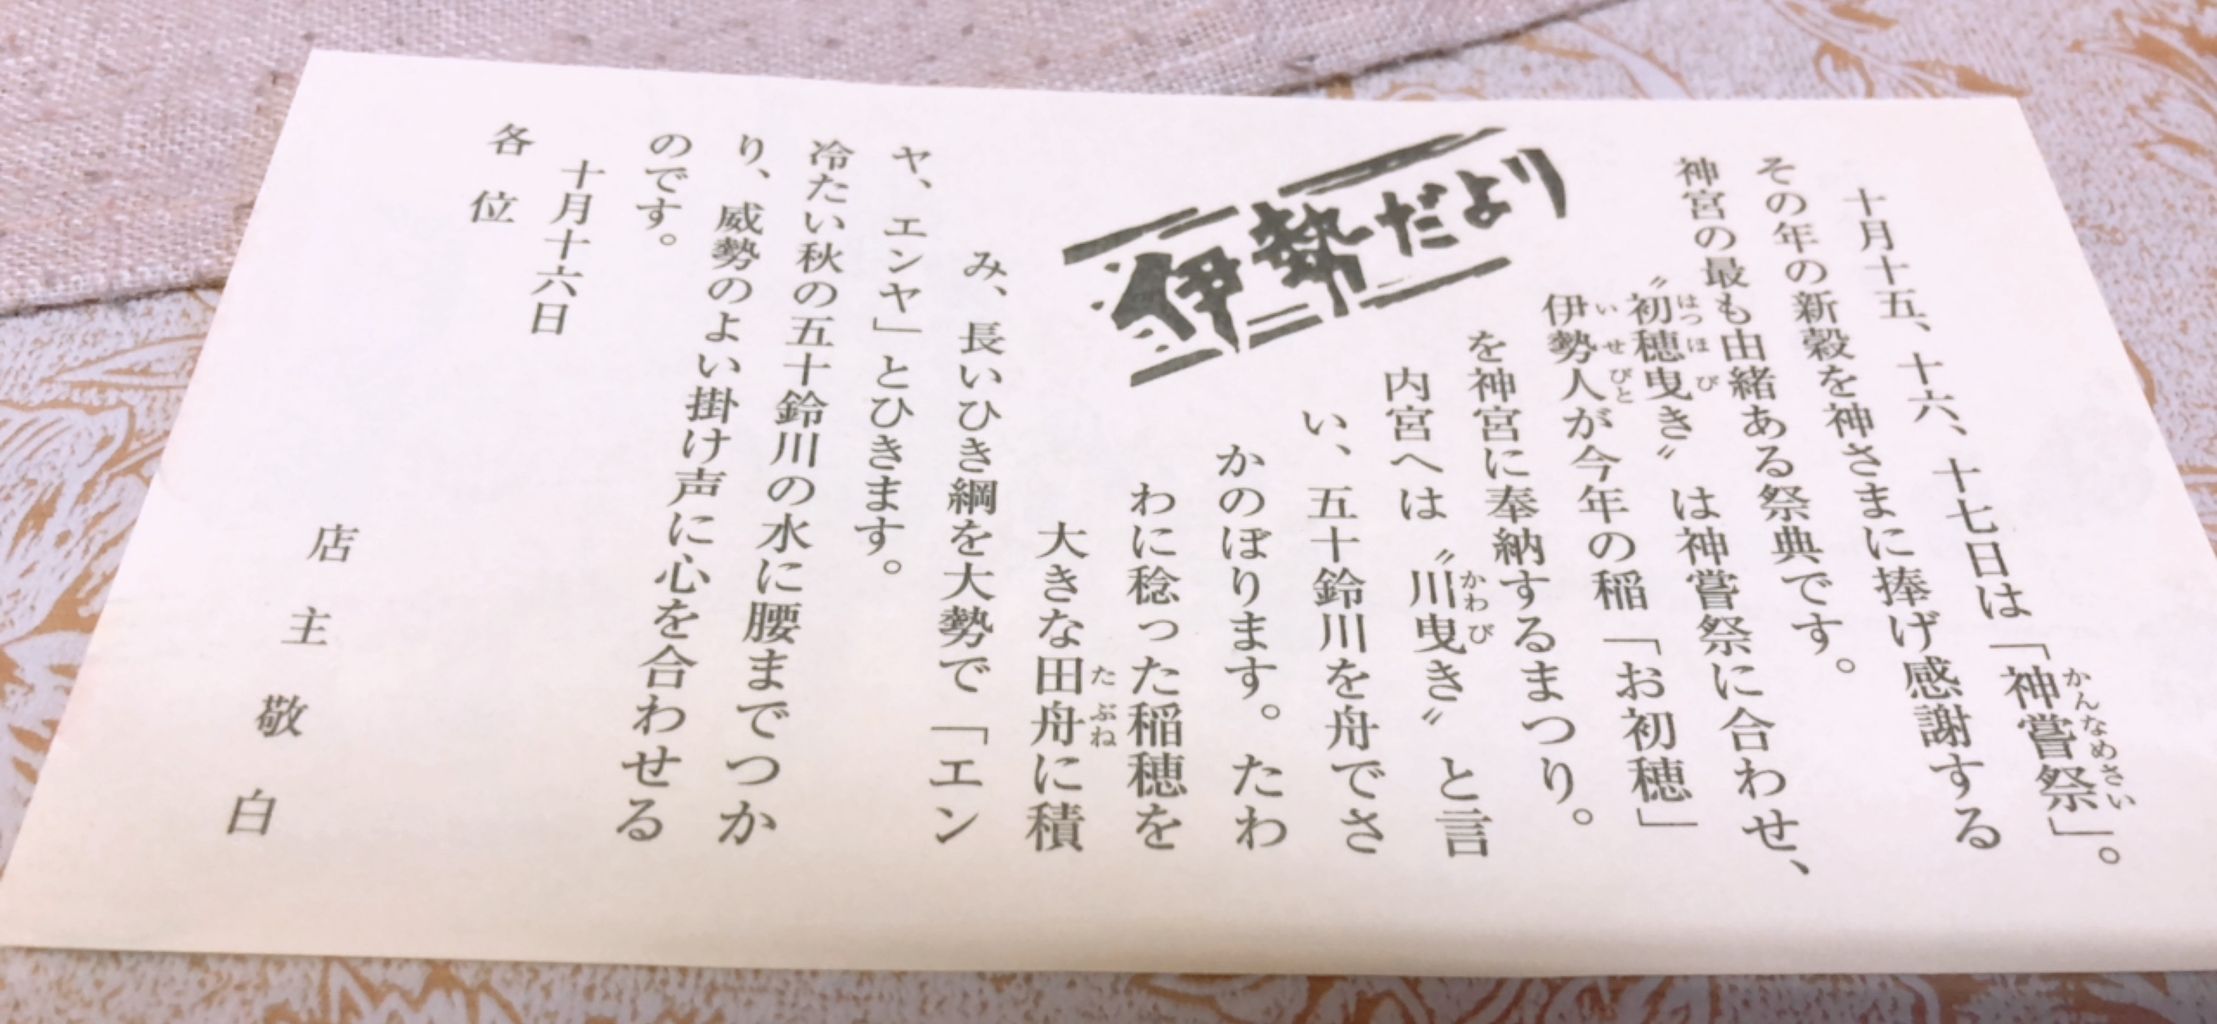 十月十五、十六、十七日は「神嘗祭」。
その年の新穀を神さまに捧げ感謝する
神宮の最も由緒ある祭典です。
〝初穂曳き〟は神嘗祭に合わせ、
伊勢人が今年の稲「お初穂」
を神宮に奉納するまつり。
内宮へは〝川曳き〟と言
い、五十鈴川を舟でさ
かのぼります。たわ
わに稔った稲穂を
大きな田舟に積
み、長いひき綱を大勢で「エン
ヤ、エンヤ」とひきます。
冷たい秋の五十鈴川の水に腰までつか
り、威勢のよい掛け声に心を合わせる
のです。
十月十六日
各位
店主敬白
伊勢だより
かんなめさい
はつほび
いせびと
かわび
たぶね